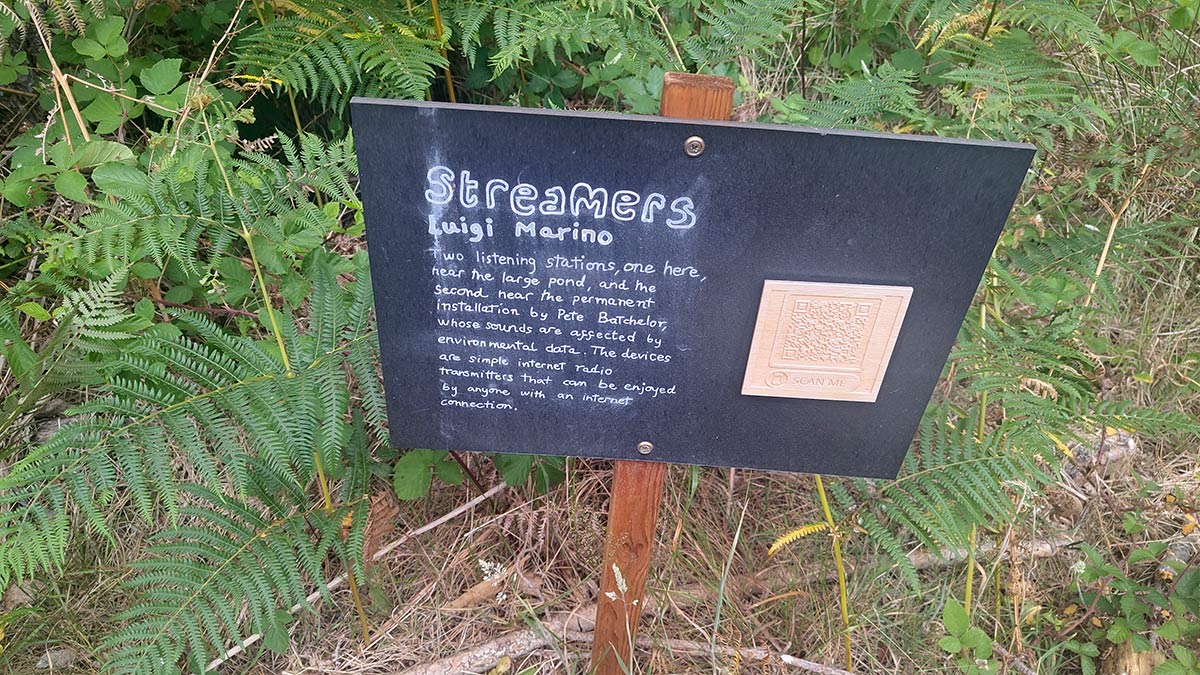 Streamers
Luigi Marino
Two listening stations, one here,
near the large pond, and the
second near the permanent
installation by Pete Batchelor,
whose sounds are affected by
environmental data. The devices
are simple internet radio
transmitters that can be enjoyed
by anyone with an internet
connection.
SCAN ME